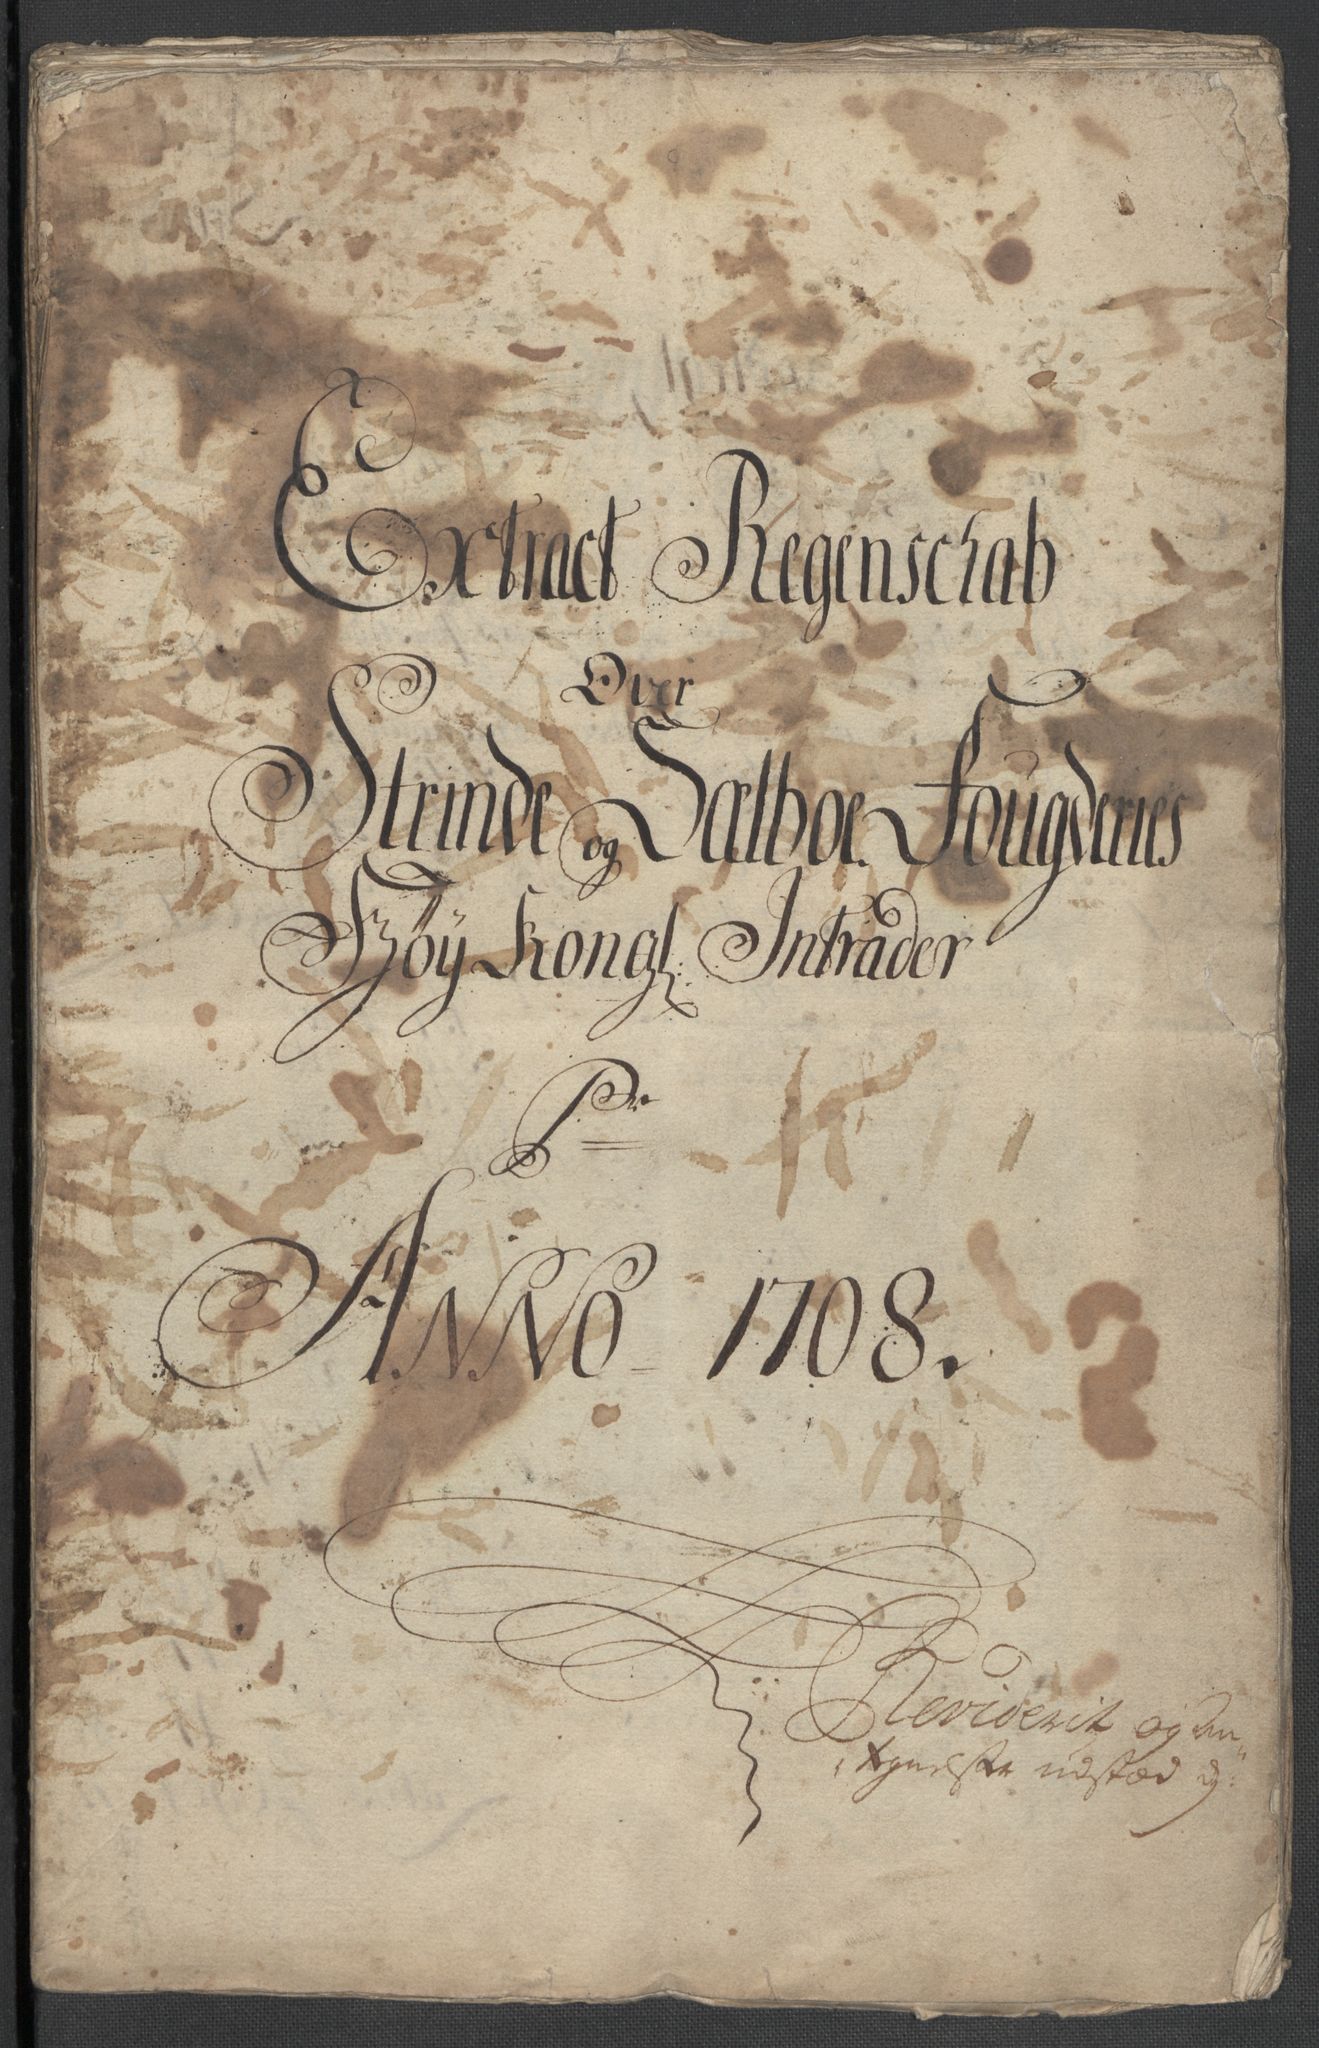 Extract Regenschab
Over
Strinde og Sælboe Fougderies
Høy Kongl: Intrader
Pr
ANNO 1708.
Reviderit og
udstæd